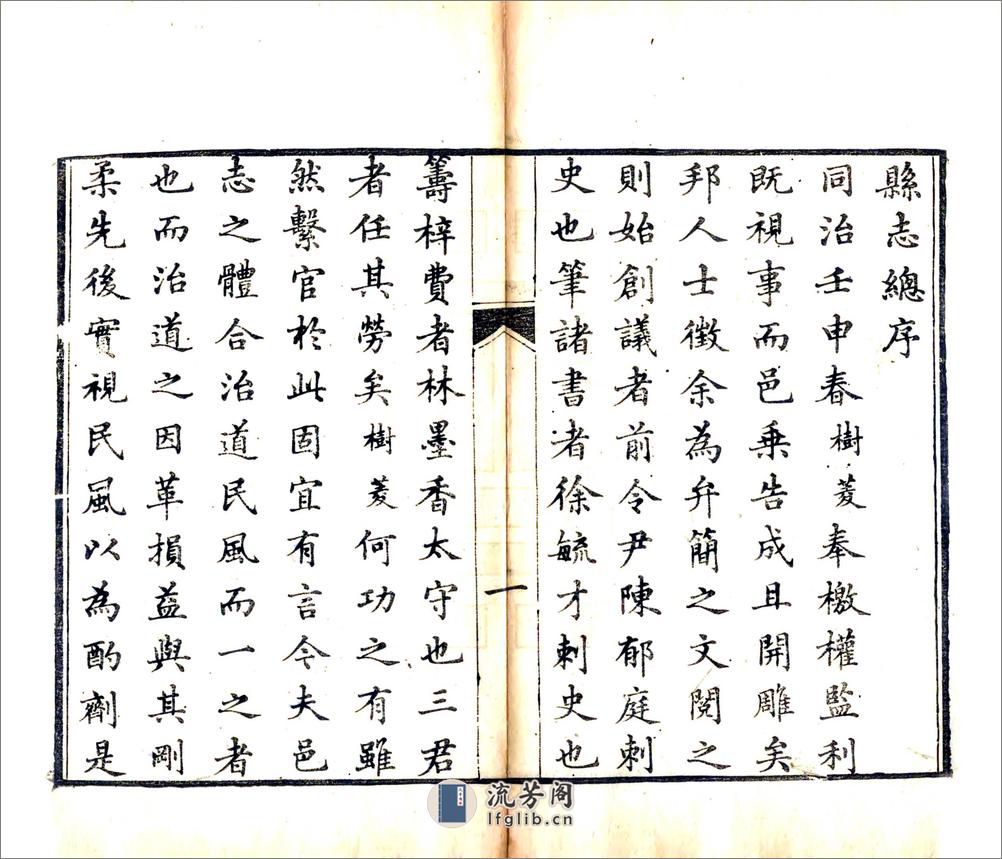 縣志總序
同治壬申春樹菱奉檄權監利
既視事而邑乗告成且開雕矣
邦人士徵余為弁簡之文閱之
則始創議者前令尹陳郁庭刺
史也筆諸書者徐毓才刺史也
一
籌梓費者林墨香太守也三君
者任其勞矣樹菱何功之有雖
然繫官於此固宜有言今夫邑
志之體合治道民風而一之者
也而治道之因革損益與其剛
柔先後實視民風以為酌劑是
流芳阁
lfglib.cn